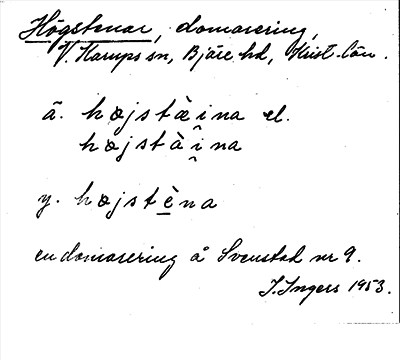 Högstenar, domarering,
V. Karups sn, Bjäre hd, Krist. län.
ä. hœjstæ̀ina el.
hœjstàina
y. hœjstèna
en domarering å Svenstad nr 9.
I. Ingers 1953.